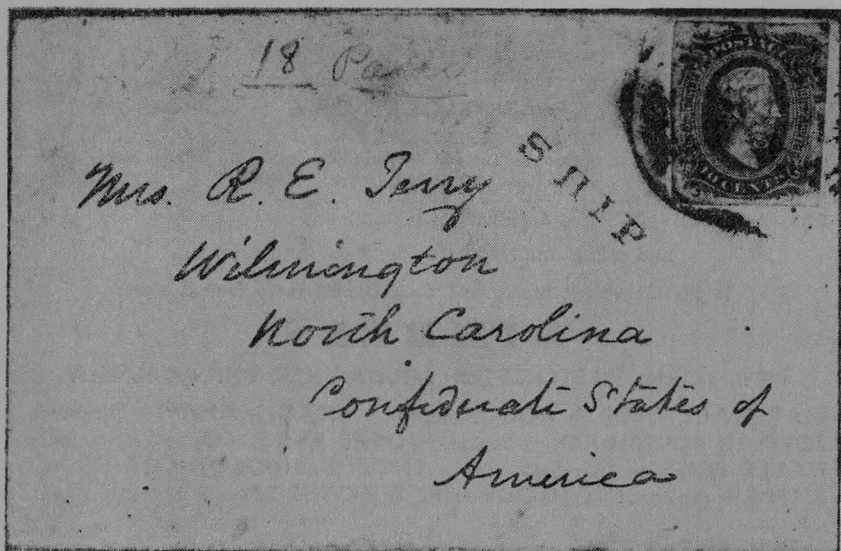 18 Paid
POSTAGE
SHIP
CENTS
Mrs. R. E. Terry
Wilmington
North Carolina
Confederate States of
America